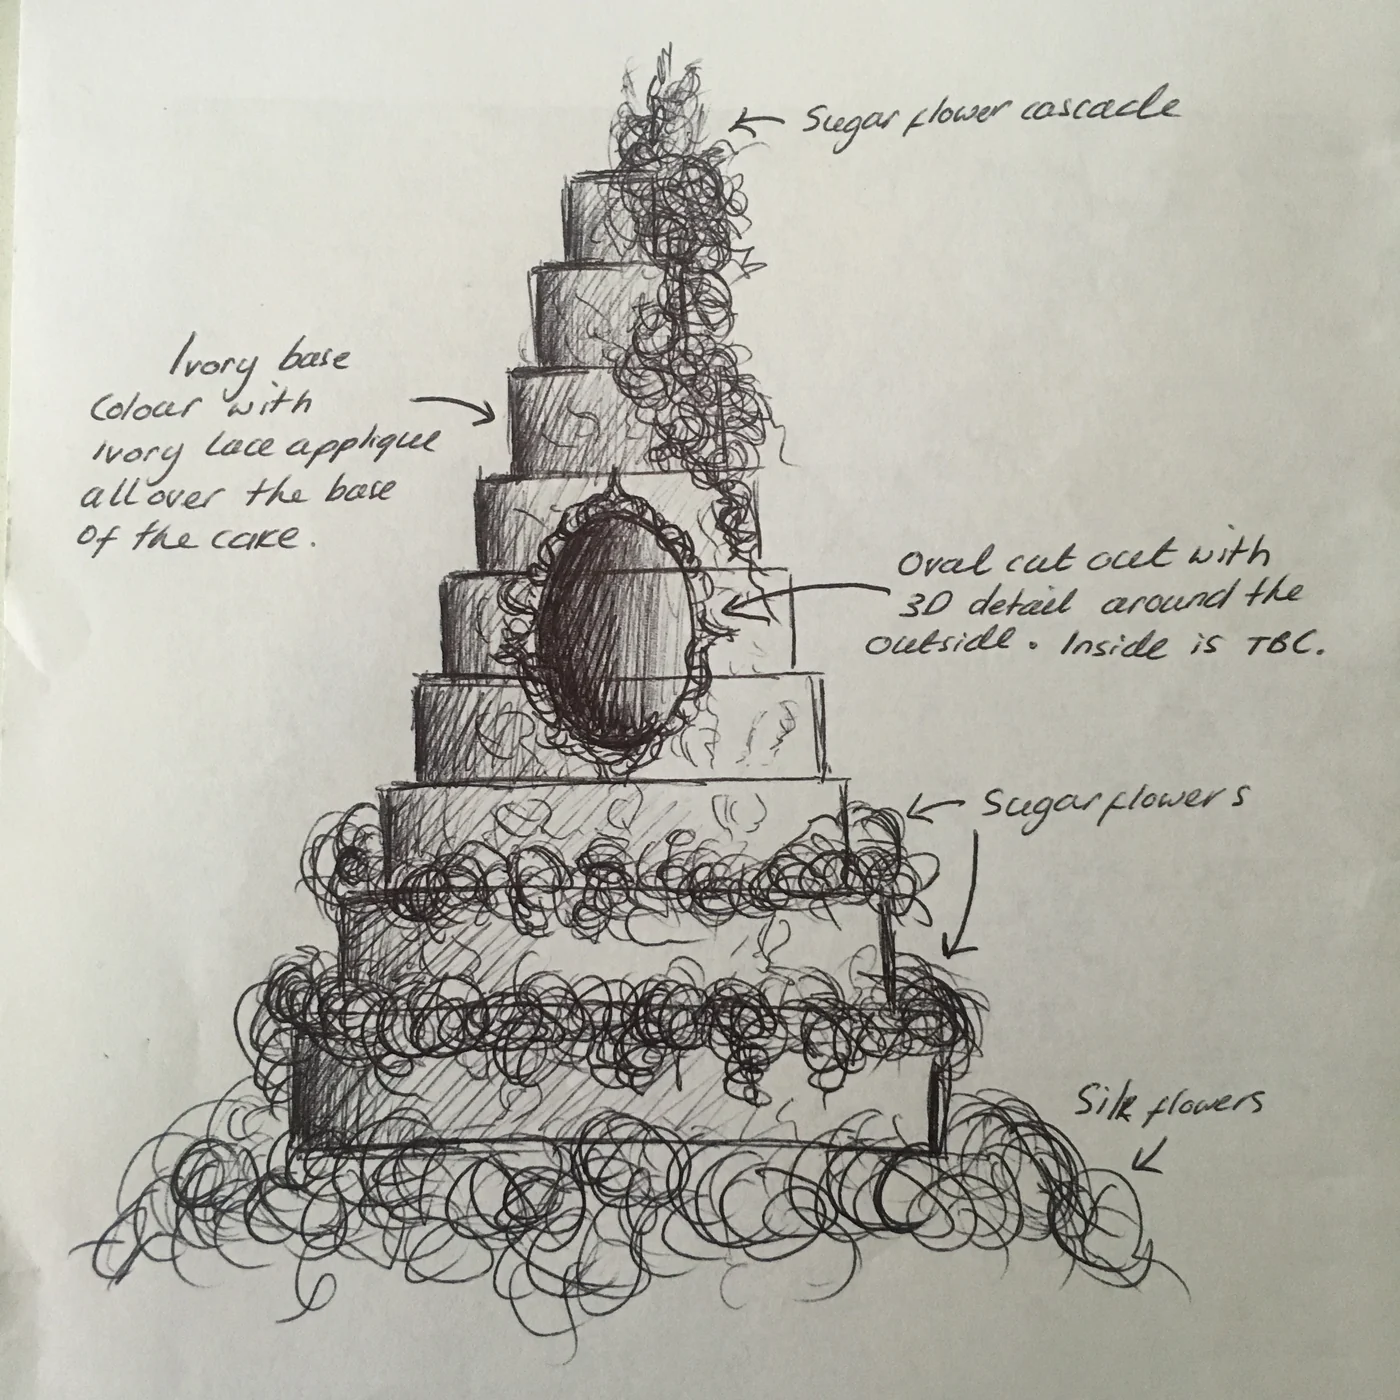 Sugar flower cascade
Ivory base
Colour with
Ivory lace applique
all over the base
of the cake.
Oval cut out with
3D detail around the
outside. Inside is TBC.
Sugar flowers
Silk flowers